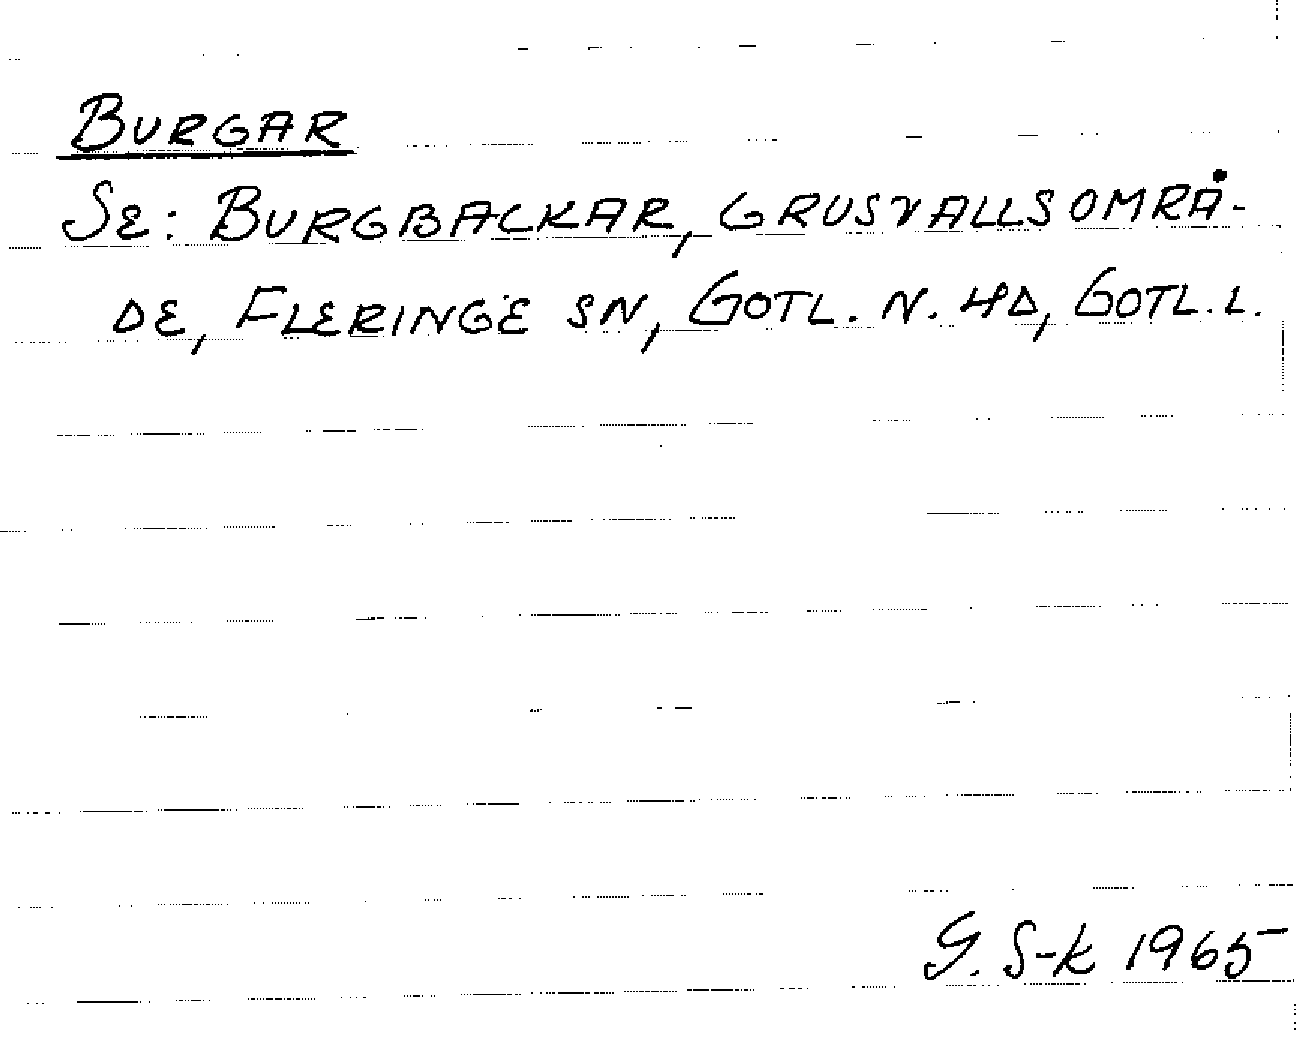 BURGAR
SE: BURGBACKAR, GRUSVALLSOMRÅ-
DE, FLERINGE SN, GOTL. N. HD, GOTL. L.
G. S-k 1965